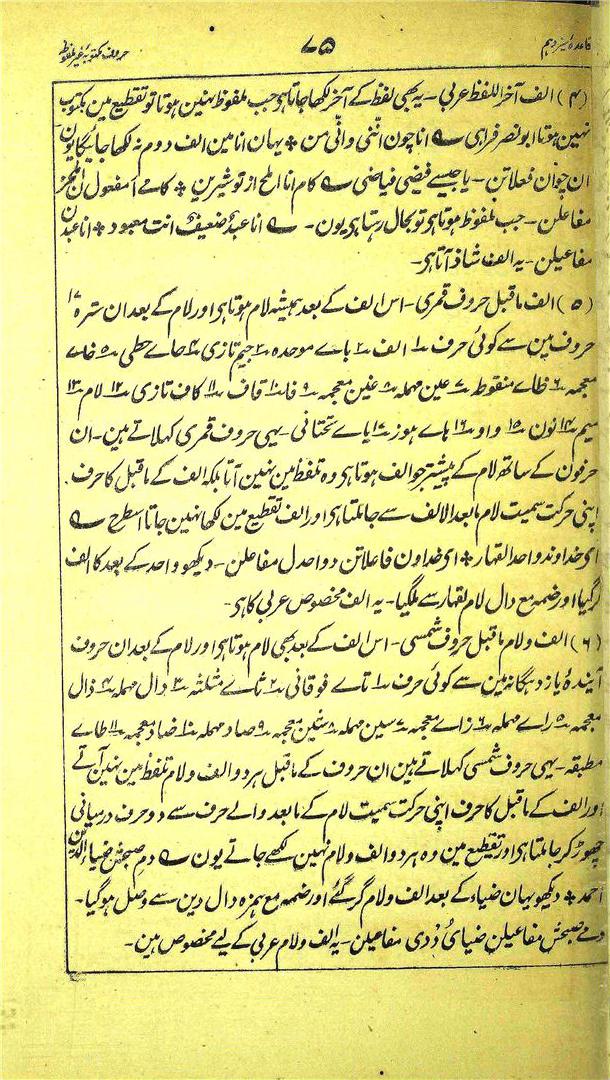 قاعدۂ سیزدہم ۷۵ حروف مکتوبۂ غیر ملفوظ
(۴) الف آخر اللفظ عربی۔ یہ بھی لفظ کے آخر لکھا جاتا ہی جب ملفوظ نہین ہوتا تو تقطیع مین مکتوب
نہین ہوتا ابو نصر فراہی ؎ انا چون اننی وانی من ؞ یہان انا مین الف دوم نہ لکھا جائیگا یون
ان چوان فعلاتن۔ یا جیسے فیضی فیاضی ؎ کام انا املح از تو شیرین ؞ کامے ا مفعول
مفاعلن۔ جب ملفوظ ہوتا ہی تو بحال رہتا ہی یون۔ ؎ انا عبدٌ ضعیفٌ انت معبود ؞ انا عبدن
مفاعیلن۔ یہ الف شاذ آتا ہی۔
(۵) الف ماقبل حروف قمری۔ اس الف کے بعد ہمیشہ لام ہوتا ہی اور لام کے بعد ان سترہ ۱۷
حروف مین سے کوئی حرف ۱ الف ۲ باے موحدہ ۳ جیم تازی ۴ حاے حطی ۵ خاے
معجمہ ۶ ظاے منقوط ۷ عین مہملہ ۸ غین معجمہ ۹ فا ۱۰ قاف ۱۱ کاف تازی ۱۲ لام ۱۳
میم ۱۴ نون ۱۵ واو ۱۶ ہاے ہوز ۱۷ یاے تحتانی۔ یہی حروف قمری کہلاتے ہین۔ ان
حرفون کے ساتھ لام کے پیشتر جو الف ہوتا ہی وہ تلفظ مین نہین آتا بلکہ الف کے ماقبل کا حرف
اپنی حرکت سمیت لام مابعد الالف سے جا ملتا ہی اور الف تقطیع مین لکھا نہین جاتا اسطرح ؎
ای خداوند واحد القہار ؞ ای خداون فاعلاتن د واحدل مفاعلن۔ دیکھو واحد کے بعد کا الف
گر گیا اور ضمہ مع دال لام لقہار سے ملگیا۔ یہ الف مخصوص عربی کا ہی۔
(۶) الف و لام ماقبل حروف شمسی۔ اس الف کے بعد بھی لام ہوتا ہی اور لام کے بعد ان حروف
آیندۂ یازدہگانہ مین سے کوئی حرف ۱ تاے فوقانی ۲ ثاے مثلثہ ۳ دال مہملہ ۴ ذال
معجمہ ۵ راے مہملہ ۶ زاے معجمہ ۷ سین مہملہ ۸ شین معجمہ ۹ صاد مہملہ ۱۰ ضاد معجمہ ۱۱ طاے
مطبقہ۔ یہی حروف شمسی کہلاتے ہین ان حروف کے ماقبل ہر دو الف و لام تلفظ مین نہین آتے
اور الف کے ماقبل کا حرف اپنی حرکت سمیت لام کے مابعد والے حرف سے دو حرف درمیانی
چھوڑ کر جا ملتا ہی اور تقطیع مین وہ ہر دو الف و لام نہین لکھے جاتے یون ؎ دم صبحش ضیاء الدین
احمد ؞ دیکھو یہان ضیاء کے بعد الف و لام گر گئے اور ضمہ مع ہمزہ دال دین سے وصل ہو گیا۔
دمے صبحش مفاعیلن ضیائ دُدی مفاعیلن۔ یہ الف و لام عربی کے لیے مخصوص ہین۔